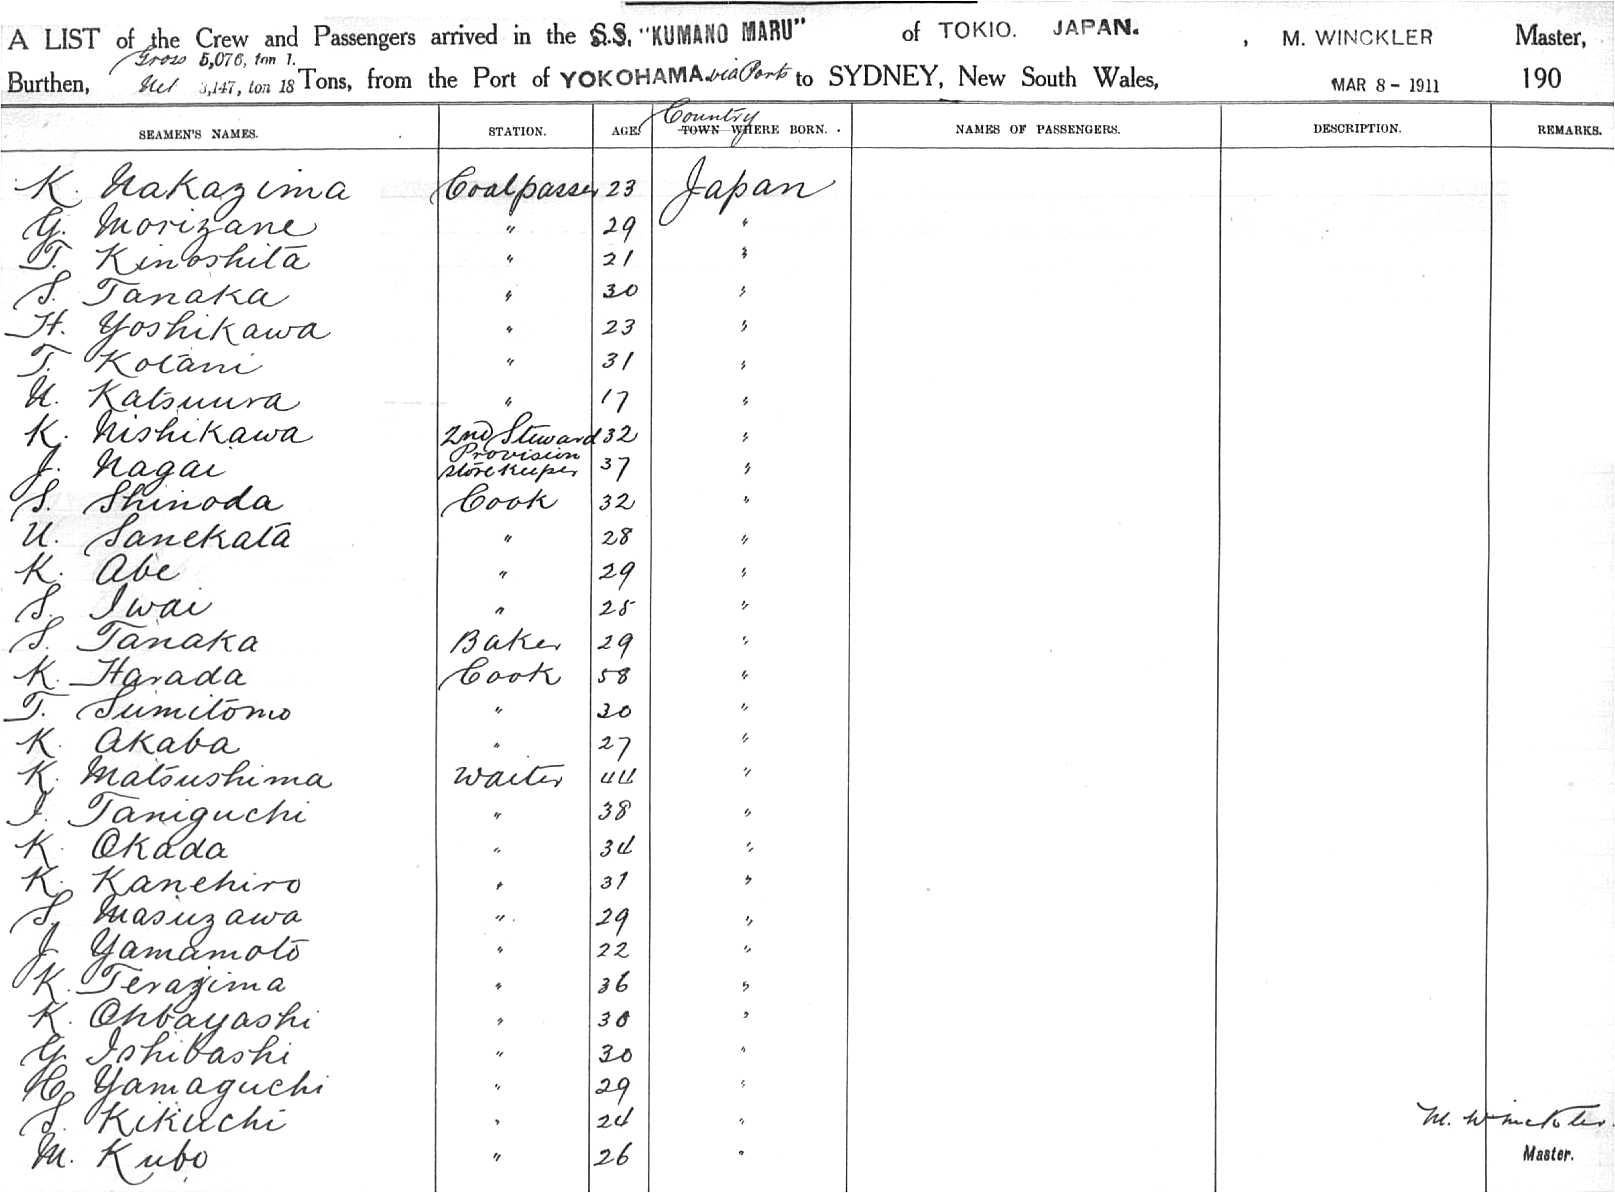 A LIST of the Crew and Passengers arrived in the S.S. "KUMANO MARU" of TOKIO. JAPAN. , M. WINCKLER Master,
Gross 5,076, ton 1.
Burthen, Net 3,147, ton 18 Tons, from the Port of YOKOHAMA via Ports to SYDNEY, New South Wales, MAR 8 - 1911 190
Country
SEAMEN'S NAMES. STATION. AGE. TOWN WHERE BORN. NAMES OF PASSENGERS. DESCRIPTION. REMARKS.
K. Nakazima Coalpasser 23 Japan
G. Morizane " 29 "
T. Kinoshita " 21 "
S. Tanaka " 30 "
H. Yoshikawa " 23 "
T. Kotani " 31 "
U. Katsuura " 17 "
K. Nishikawa 2nd Steward 32 "
J. Nagai Provision Storekeeper 37 "
S. Shinoda Cook 32 "
U. Sanekata " 28 "
K. Abe " 29 "
S. Iwai " 25 "
S. Tanaka Baker 29 "
K. Harada Cook 58 "
T. Sumitomo " 30 "
K. Akaba " 27 "
K. Matsushima Waiter 44 "
I. Taniguchi " 38 "
K. Okada " 34 "
K. Kanehiro " 31 "
S. Masuzawa " 29 "
J. Yamamoto " 22 "
K. Terazima " 36 "
K. Ohbayashi " 30 "
G. Ishibashi " 30 "
H. Yamaguchi " 29 "
S. Kikuchi " 24 "
M. Winckler
M. Kubo " 26 "
Master.